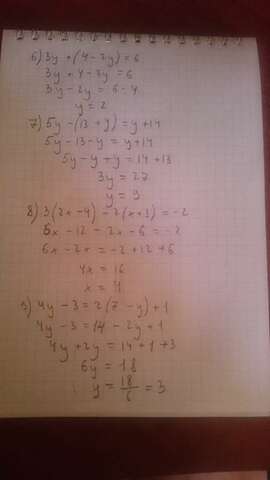 6) 3y + (4 - 2y) = 6
3y + 4 - 2y = 6
3y - 2y = 6 - 4
y = 2
7) 5y - (13 + y) = y + 14
5y - 13 - y = y + 14
5y - y - y = 14 + 13
3y = 27
y = 9
8) 3(2x - 4) - 2(x + 3) = -2
6x - 12 - 2x - 6 = -2
6x - 2x = -2 + 12 + 6
4x = 16
x = 4
9) 4y - 3 = 2(7 - y) + 1
4y - 3 = 14 - 2y + 1
4y + 2y = 14 + 1 + 3
6y = 18
y = 18/6 = 3